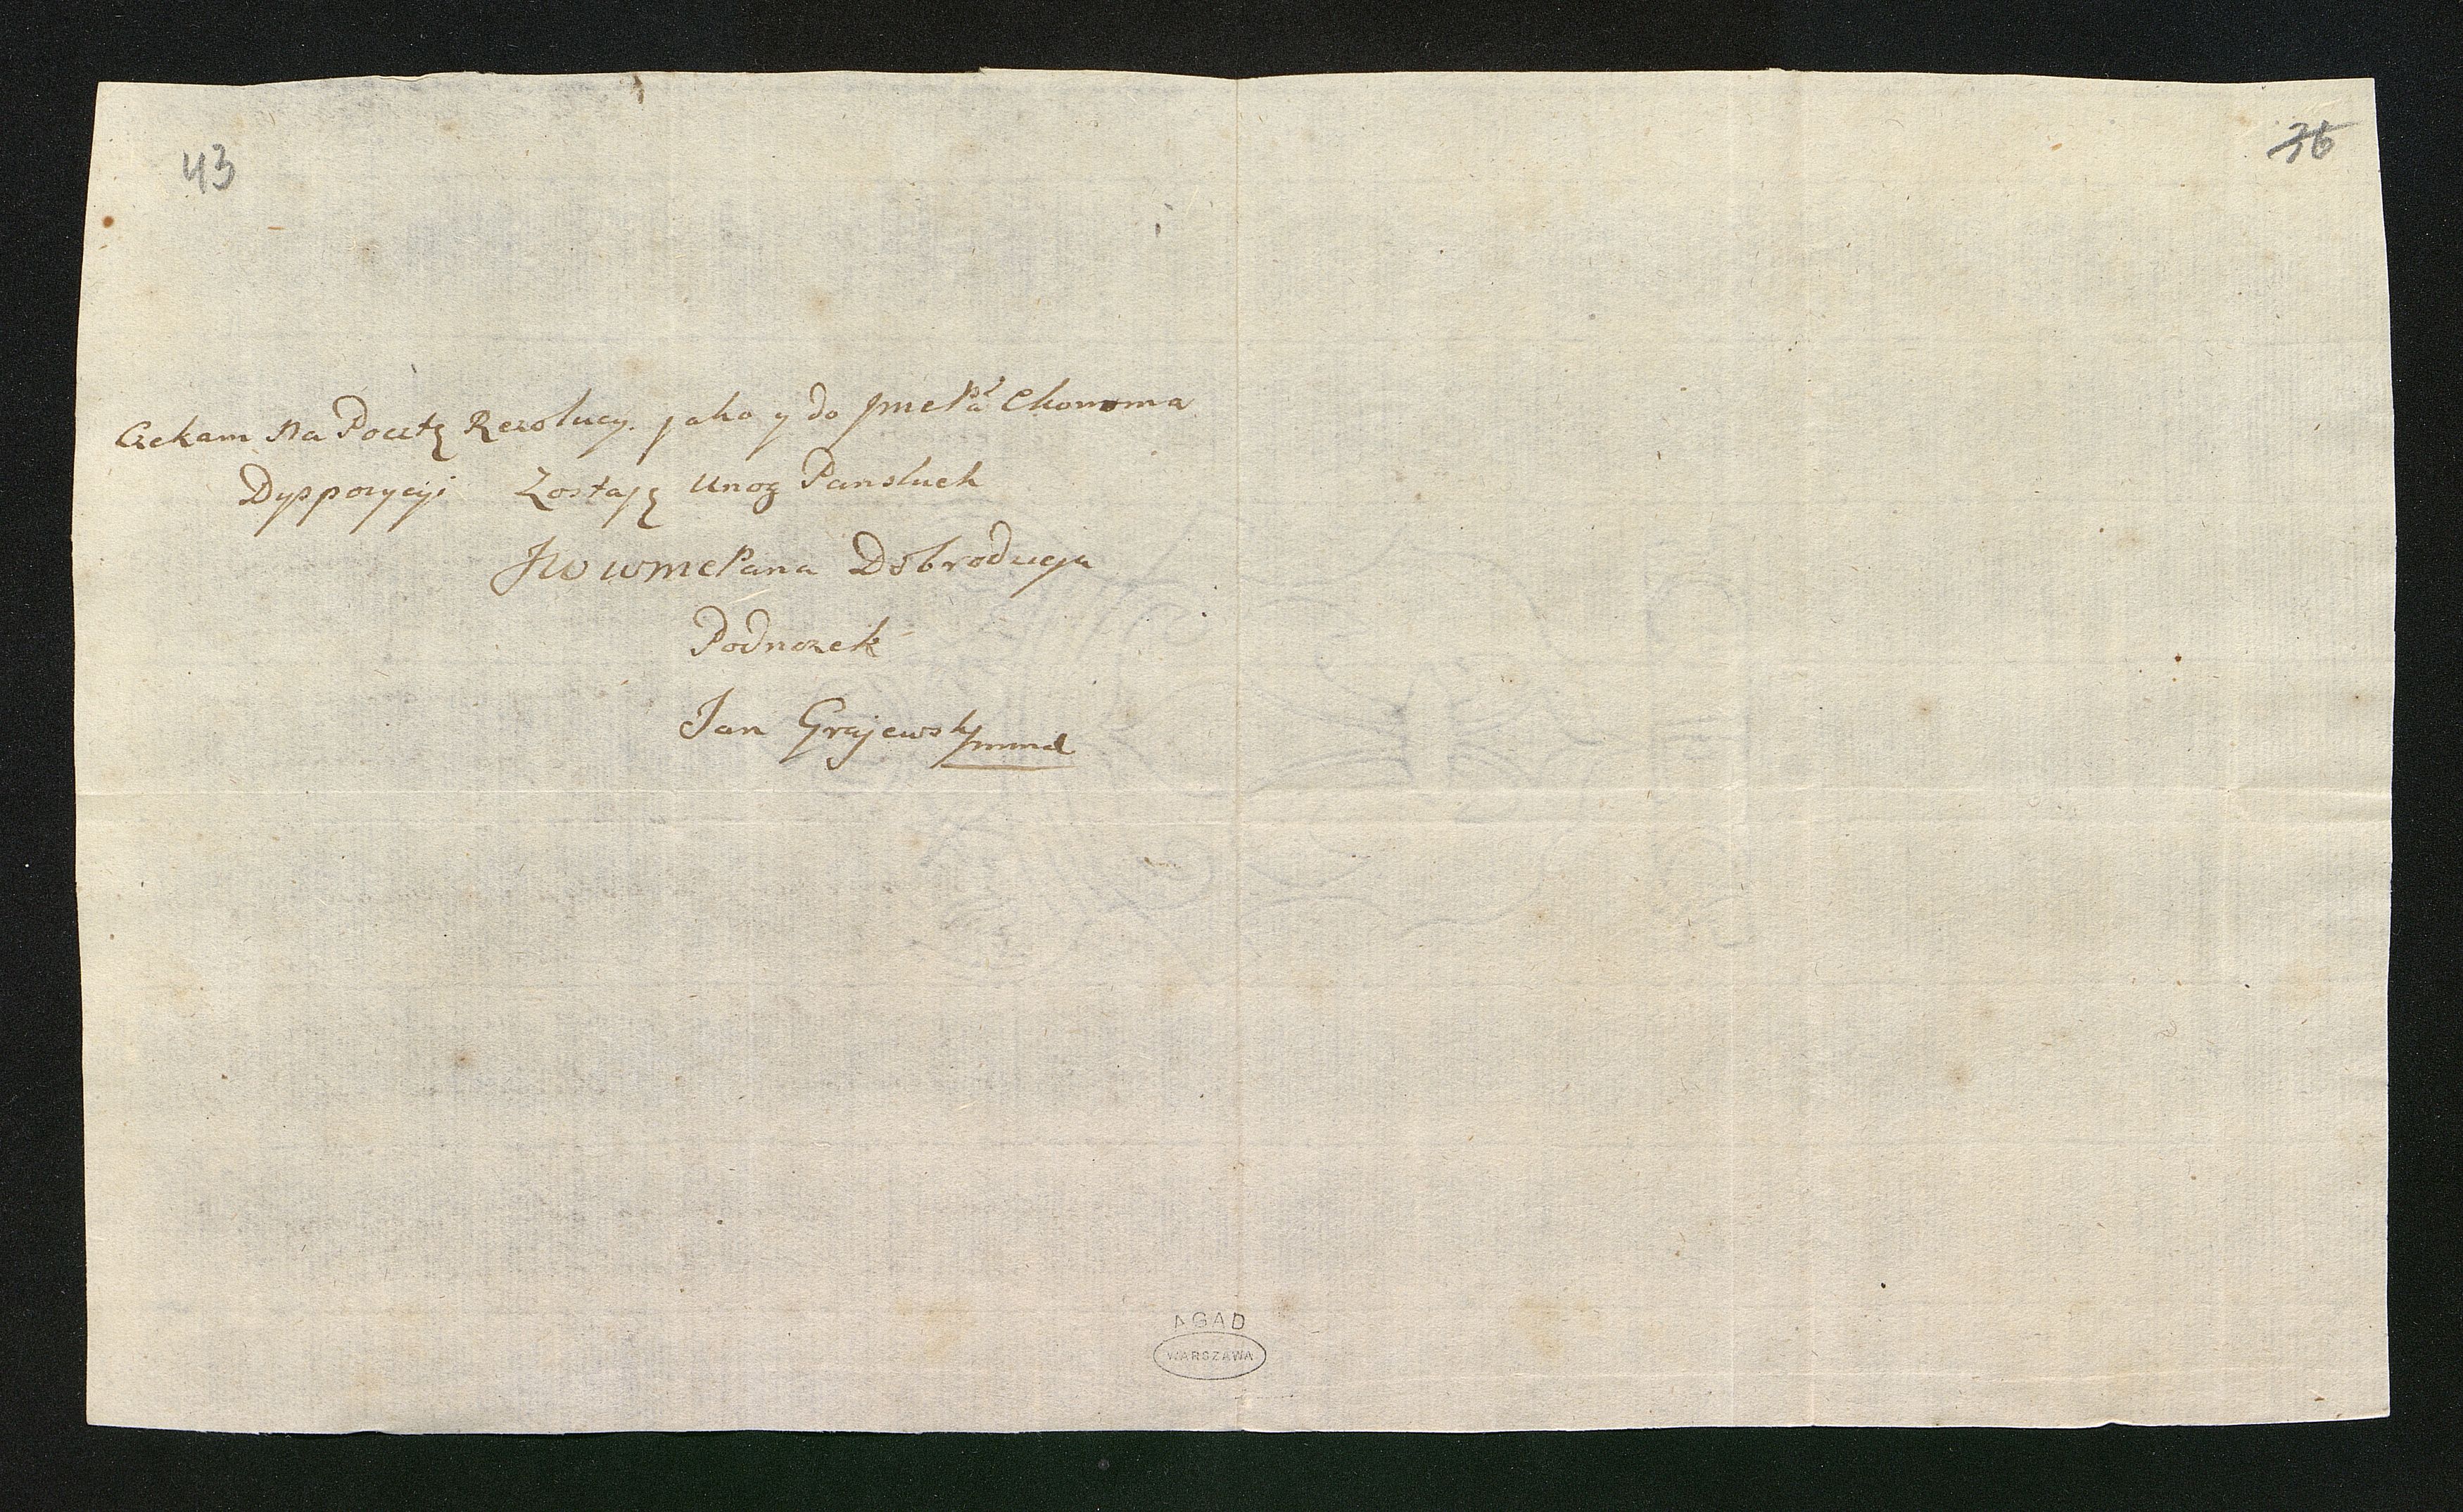 43
36
Czekam Na Pocztę Rezolucy. jako y do JmcPa Ekonoma
Dyspozycyi Zostaję Unog Panskich
JWWmcPana Dobrodzieja
Podnozek
Jan Grajewski mmd
AGAD
WARSZAWA